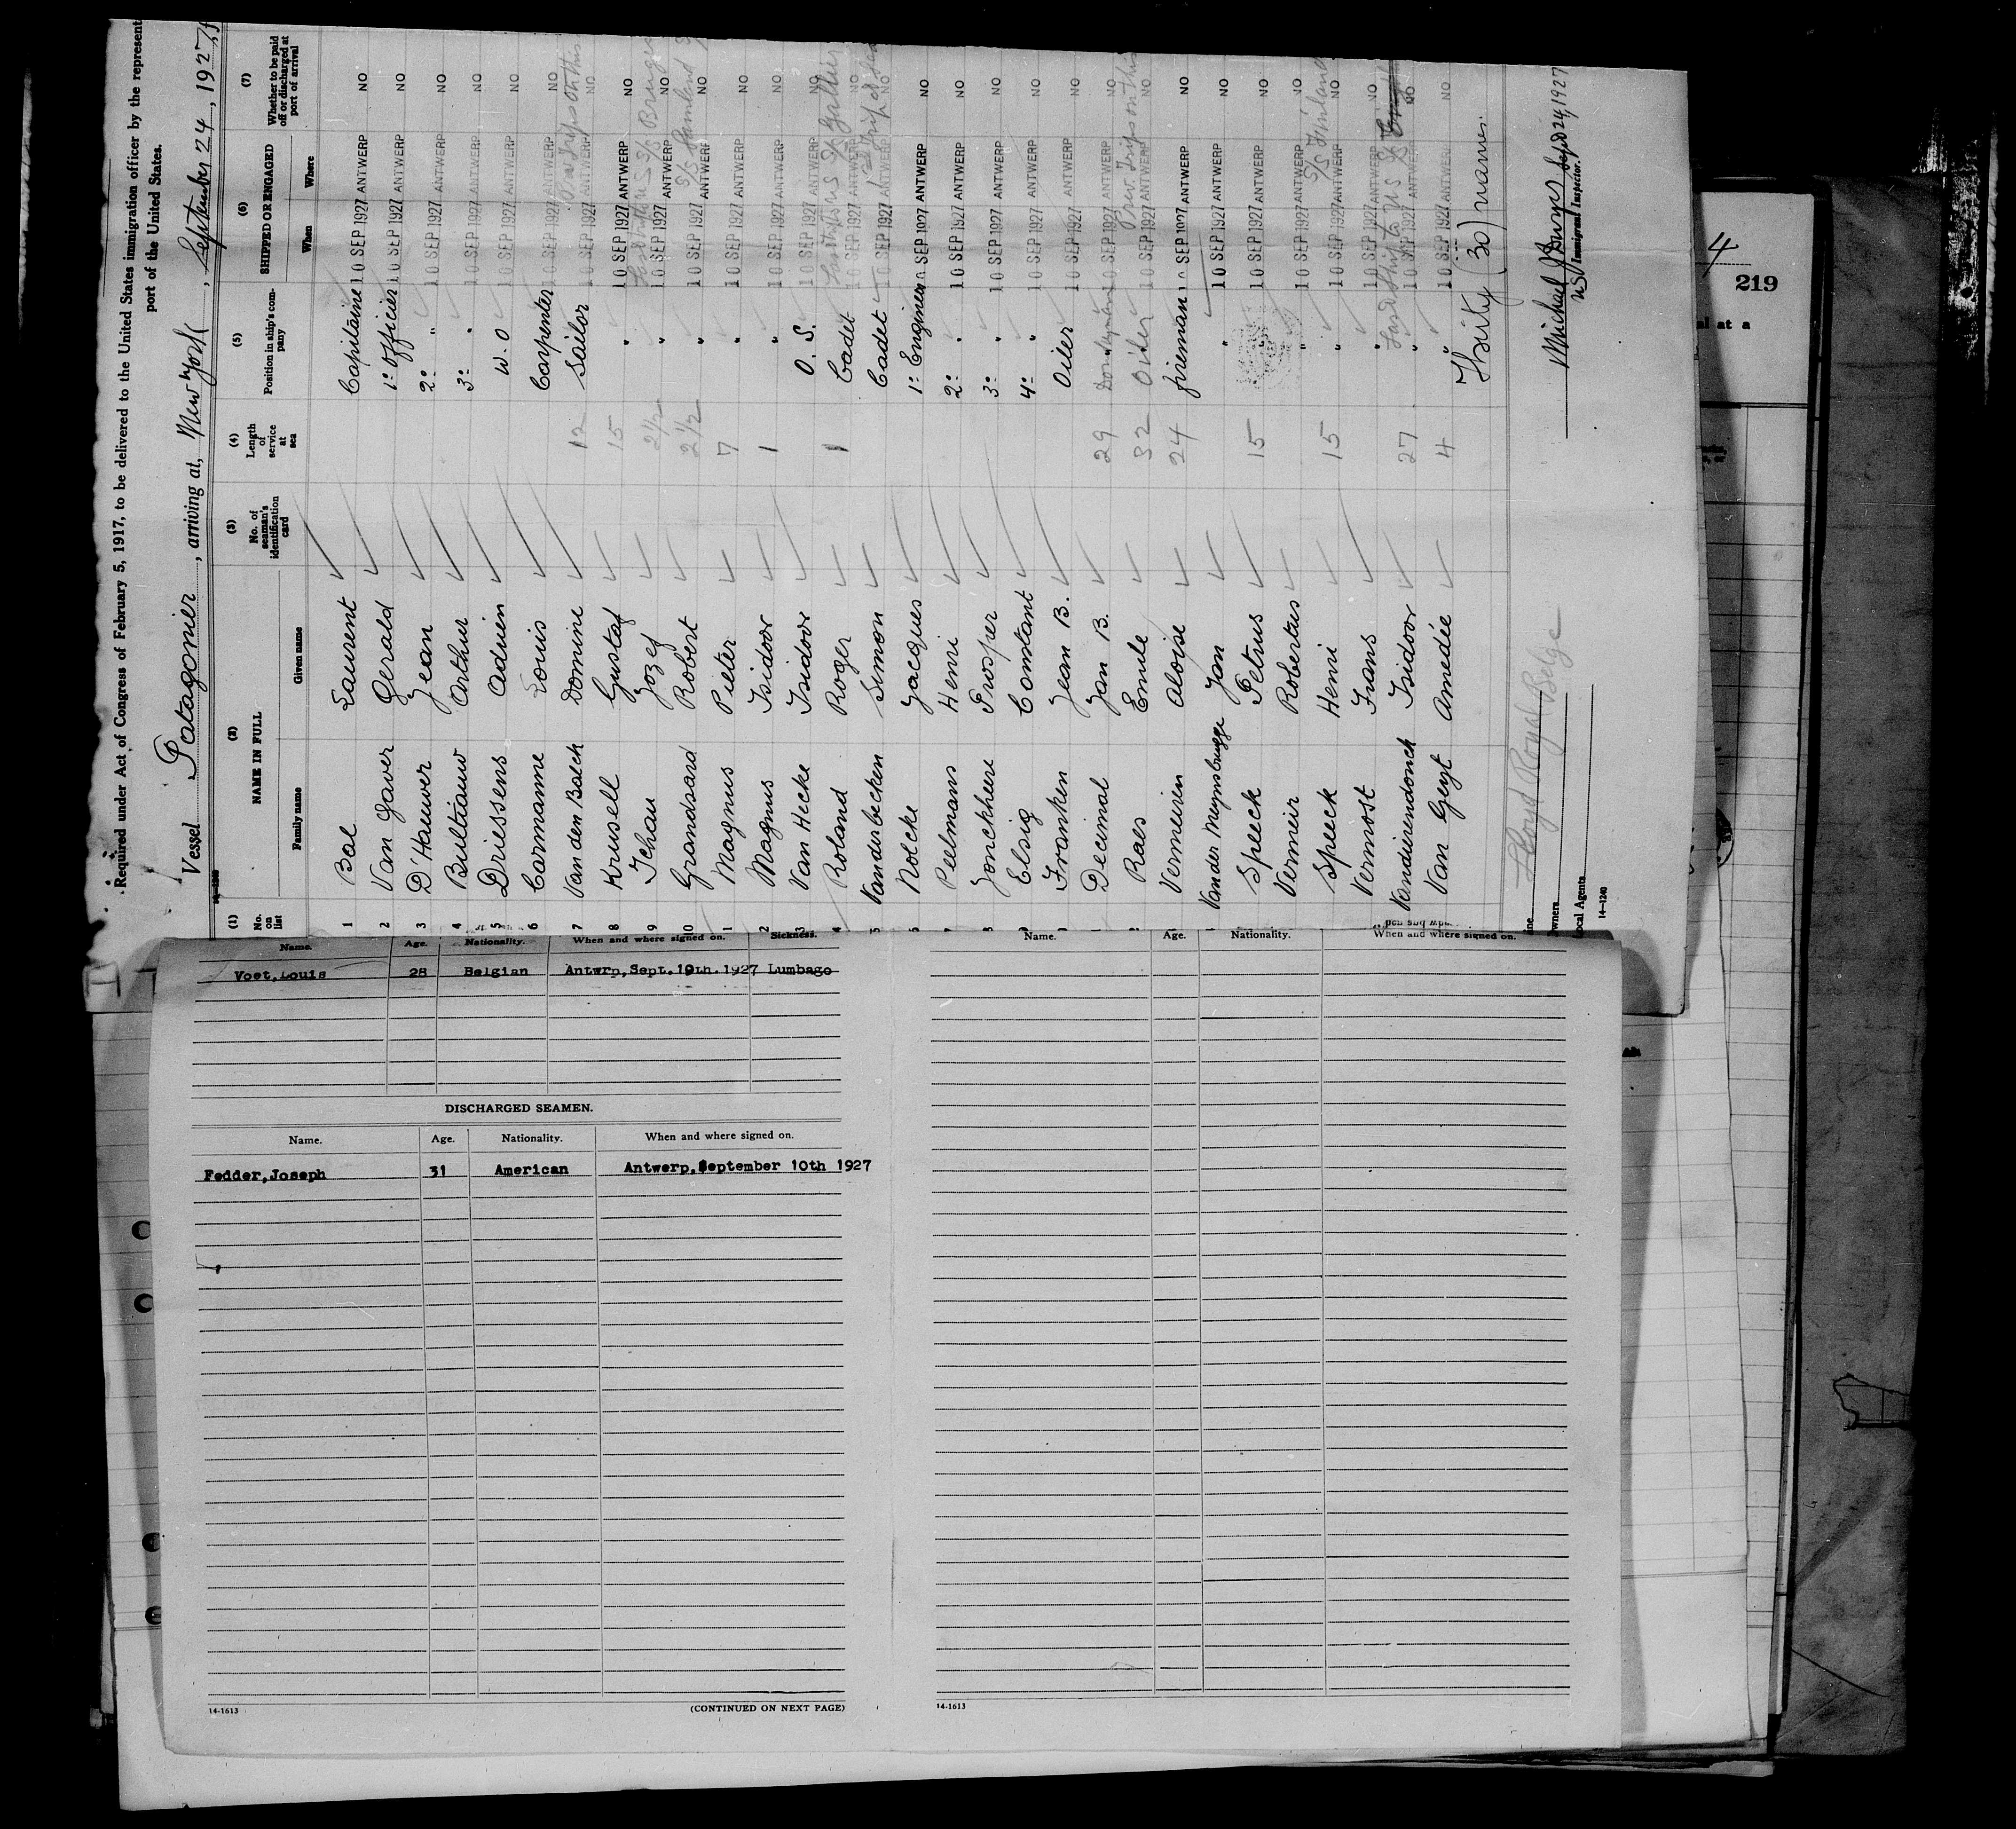 Required under Act of Congress of February 5, 1917, to be delivered to the United States immigration officer by the represent
port of the United States.
Vessel Patagonier, arriving at, New York, September 24, 1927
(1) No. on list (2) NAME IN FULL Family name Given name (3) No. of seaman's identification card (4) Length of service at sea (5) Position in ship's company (6) SHIPPED OR ENGAGED When Where (7) Whether to be paid off or discharged at port of arrival
1 Bal Laurent Capitaine 10 SEP 1927 ANTWERP NO
2 Van Gaver Gerald 1° Officier 10 SEP 1927 ANTWERP NO
3 D'Hauwer Jean 2° " 10 SEP 1927 ANTWERP NO
4 Bultauw Arthur 3° " 10 SEP 1927 ANTWERP NO
5 Driessens Adrien W.O 10 SEP 1927 ANTWERP NO
6 Carmanne Louis Carpenter 10 SEP 1927 ANTWERP NO
7 Van den Balck Domine 12 Sailor 10 SEP 1927 ANTWERP NO
8 Krusell Gustaf 15 " 10 SEP 1927 ANTWERP NO
9 Ichau Jozef 2 1/2 " 10 SEP 1927 ANTWERP NO
10 Grandsard Robert 2 1/2 " 10 SEP 1927 ANTWERP NO
1 Magnus Pieter 7 " 10 SEP 1927 ANTWERP NO
2 Magnus Isidoor 1 " 10 SEP 1927 ANTWERP NO
3 Van Hecke Isidoor O.S. 10 SEP 1927 ANTWERP NO
4 Roland Roger 1 Cadet 10 SEP 1927 ANTWERP NO
5 Vanderbecken Simon Cadet 10 SEP 1927 ANTWERP NO
6 Nolcke Jacques 1° Engineer 10 SEP 1927 ANTWERP NO
7 Peelmans Henri 2° " 10 SEP 1927 ANTWERP NO
8 Jonckhere Prosper 3° " 10 SEP 1927 ANTWERP NO
9 Elsig Constant 4° " 10 SEP 1927 ANTWERP NO
Franken Jean B. Oiler 10 SEP 1927 ANTWERP NO
1 Decimal Jan B. 29 Donkeyman 10 SEP 1927 ANTWERP NO
2 Raes Emile 32 Oiler 10 SEP 1927 ANTWERP NO
Vermeiren Aloise 24 fireman 10 SEP 1927 ANTWERP NO
Van der Meynsbrugge Jan " 10 SEP 1927 ANTWERP NO
Speeck Petrus 15 10 SEP 1927 ANTWERP NO
Vermeir Robertus " 10 SEP 1927 ANTWERP NO
Speeck Henri 15 " 10 SEP 1927 ANTWERP NO
Vermost Frans " 10 SEP 1927 ANTWERP NO
Vandierendonck Isidoor 27 " 10 SEP 1927 ANTWERP NO
Van Geyt Amedée 4 " 10 SEP 1927 ANTWERP NO
S/S Bruges
S/S Samland
S/S Finland
Thirty (30) names.
Lloyd Royal Belge
Line
Owners
Local Agents
14-1240
Michael J. Burges Sept 24, 1927
US Immigrant Inspector.
Name. Age. Nationality. When and where signed on. Sickness.
Voet, Louis 28 Belgian Antwrp, Sept. 10th. 1927 Lumbago
DISCHARGED SEAMEN.
Name. Age. Nationality. When and where signed on.
Fedder, Joseph 31 American Antwerp, September 10th 1927
14-1613 (CONTINUED ON NEXT PAGE)
Name. Age. Nationality. When and where signed on.
14-1613
4
219
al at a